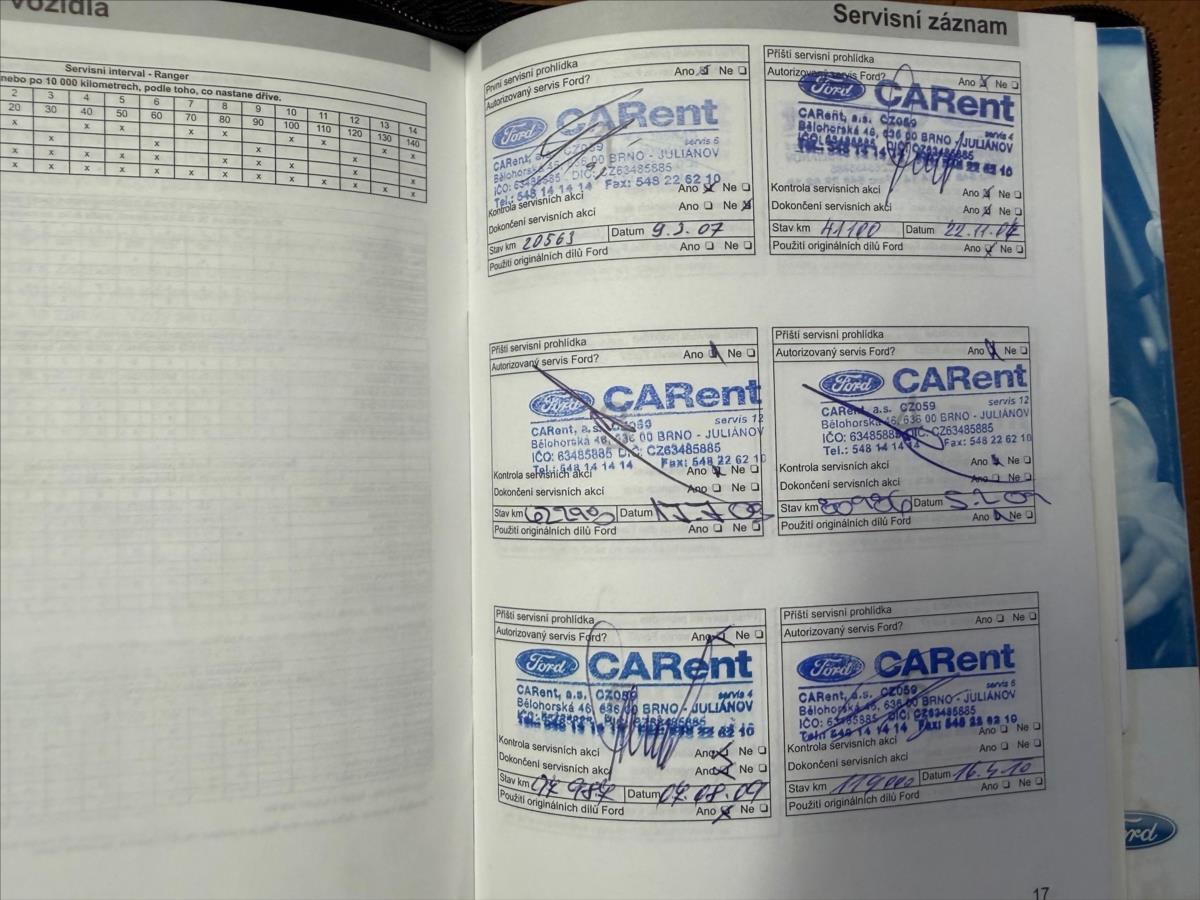 vozidla
Servisní interval - Ranger
nebo po 10 000 kilometrech, podle toho, co nastane dříve.
2 3 4 5 6 7 8 9 10 11 12 13 14
20 30 40 50 60 70 80 90 100 110 120 130 140
Servisní záznam
První servisní prohlídka
Autorizovaný servis Ford? Ano Ne
Ford CARent
servis 5
CARent, a.s. CZ059
Bělohorská 46, 636 00 BRNO - JULIÁNOV
IČO: 63485885 DIČ: CZ63485885
Tel.: 548 14 14 14 Fax: 548 22 62 10
Kontrola servisních akcí Ano Ne
Dokončení servisních akcí Ano Ne
Stav km 20563 Datum 9.3.07
Použití originálních dílů Ford Ano Ne
Příští servisní prohlídka
Autorizovaný servis Ford? Ano Ne
Ford CARent
CARent, a.s. CZ059 servis 4
Bělohorská 46, 636 00 BRNO - JULIÁNOV
IČO: 63485885 DIČ: CZ63485885
Tel.: 548 14 14 14 Fax: 548 22 62 10
Kontrola servisních akcí Ano Ne
Dokončení servisních akcí Ano Ne
Stav km 41100 Datum 22.11.07
Použití originálních dílů Ford Ano Ne
Příští servisní prohlídka
Autorizovaný servis Ford? Ano Ne
Ford CARent
servis 12
CARent, a.s. CZ059
Bělohorská 46, 636 00 BRNO - JULIÁNOV
IČO: 63485885 DIČ: CZ63485885
Tel.: 548 14 14 14 Fax: 548 22 62 10
Kontrola servisních akcí Ano Ne
Dokončení servisních akcí Ano Ne
Stav km Datum
Použití originálních dílů Ford Ano Ne
Příští servisní prohlídka
Autorizovaný servis Ford? Ano Ne
Ford CARent
servis 12
CARent, a.s. CZ059
Bělohorská 46, 636 00 BRNO - JULIÁNOV
IČO: 63485885 DIČ: CZ63485885
Tel.: 548 14 14 14 Fax: 548 22 62 10
Kontrola servisních akcí Ano Ne
Dokončení servisních akcí Ano Ne
Stav km Datum
Použití originálních dílů Ford Ano Ne
Příští servisní prohlídka
Autorizovaný servis Ford? Ano Ne
Ford CARent
CARent, a.s. CZ059 servis 4
Bělohorská 46, 636 00 BRNO - JULIÁNOV
Kontrola servisních akcí Ano Ne
Dokončení servisních akcí Ano Ne
Stav km Datum 07.08.09
Použití originálních dílů Ford Ano Ne
Příští servisní prohlídka
Autorizovaný servis Ford? Ano Ne
Ford CARent
CARent, a.s. CZ059 servis 5
Bělohorská 46, 636 00 BRNO - JULIÁNOV
IČO: 63485885 DIČ: CZ63485885
548 14 14 14 Fax: 548 22 62 10
Kontrola servisních akcí Ano Ne
Dokončení servisních akcí Ano Ne
Stav km 119000 Datum 16.4.10
Použití originálních dílů Ford Ano Ne
17